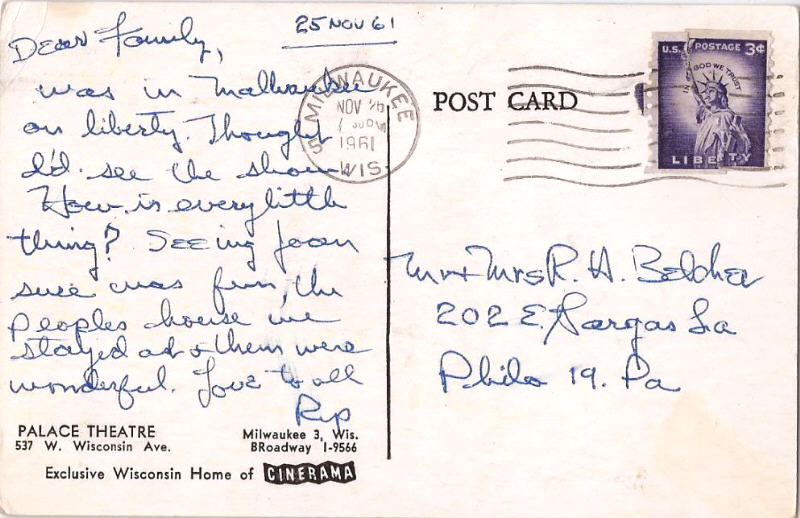 25 NOV 61
Dear Family,
was in Mallwaukee
on liberty. Thought
I'd see the show
How is every little
thing? Seeing Joan
sure was fun, the
peoples house we
stayed at & them were
wonderful. Love to all
Rip
PALACE THEATRE
537 W. Wisconsin Ave.
Milwaukee 3, Wis.
BRoadway 1-9566
Exclusive Wisconsin Home of CINERAMA
MILWAUKEE
NOV
1961
WIS.
POST CARD
U.S. POSTAGE 3¢
IN GOD WE TRUST
LIBERTY
Mr + Mrs R. H. Belcher
202 E.
Phila 19. Pa